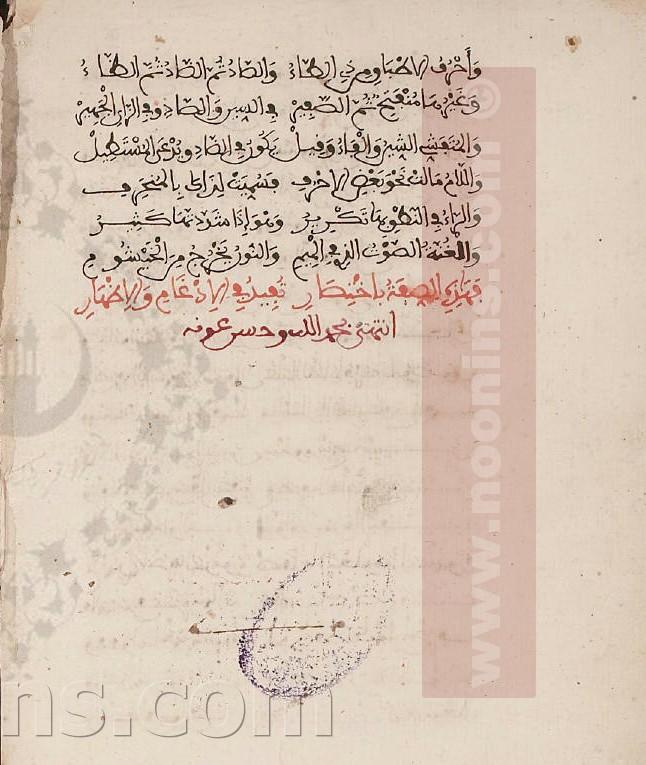 وَأَحْرُفُ الإطباق فهي الطاءُ والصادُ ثم الضادُ ثم الظاءُ
وغيرها منفتح ثم الصفير في السين والصاد وفي الزاي الجهير
والمتفشي الشين والفاء وقيل يكون في الضاد ويدعى المستطيل
واللام مالت نحو بعض الاحرف فسميت لذاك بالمنحرف
والراء في النطق بها تكرير وهو إذا شددتها كثير
والغنة الصوت الذي في الميم والنون يخرج من الخيشوم
فهذه الصفة باختصار تفيد في الإدغام والإظهار
انتهى بحمد الله وحسن عونه
www.noonins.com ©
ns.com